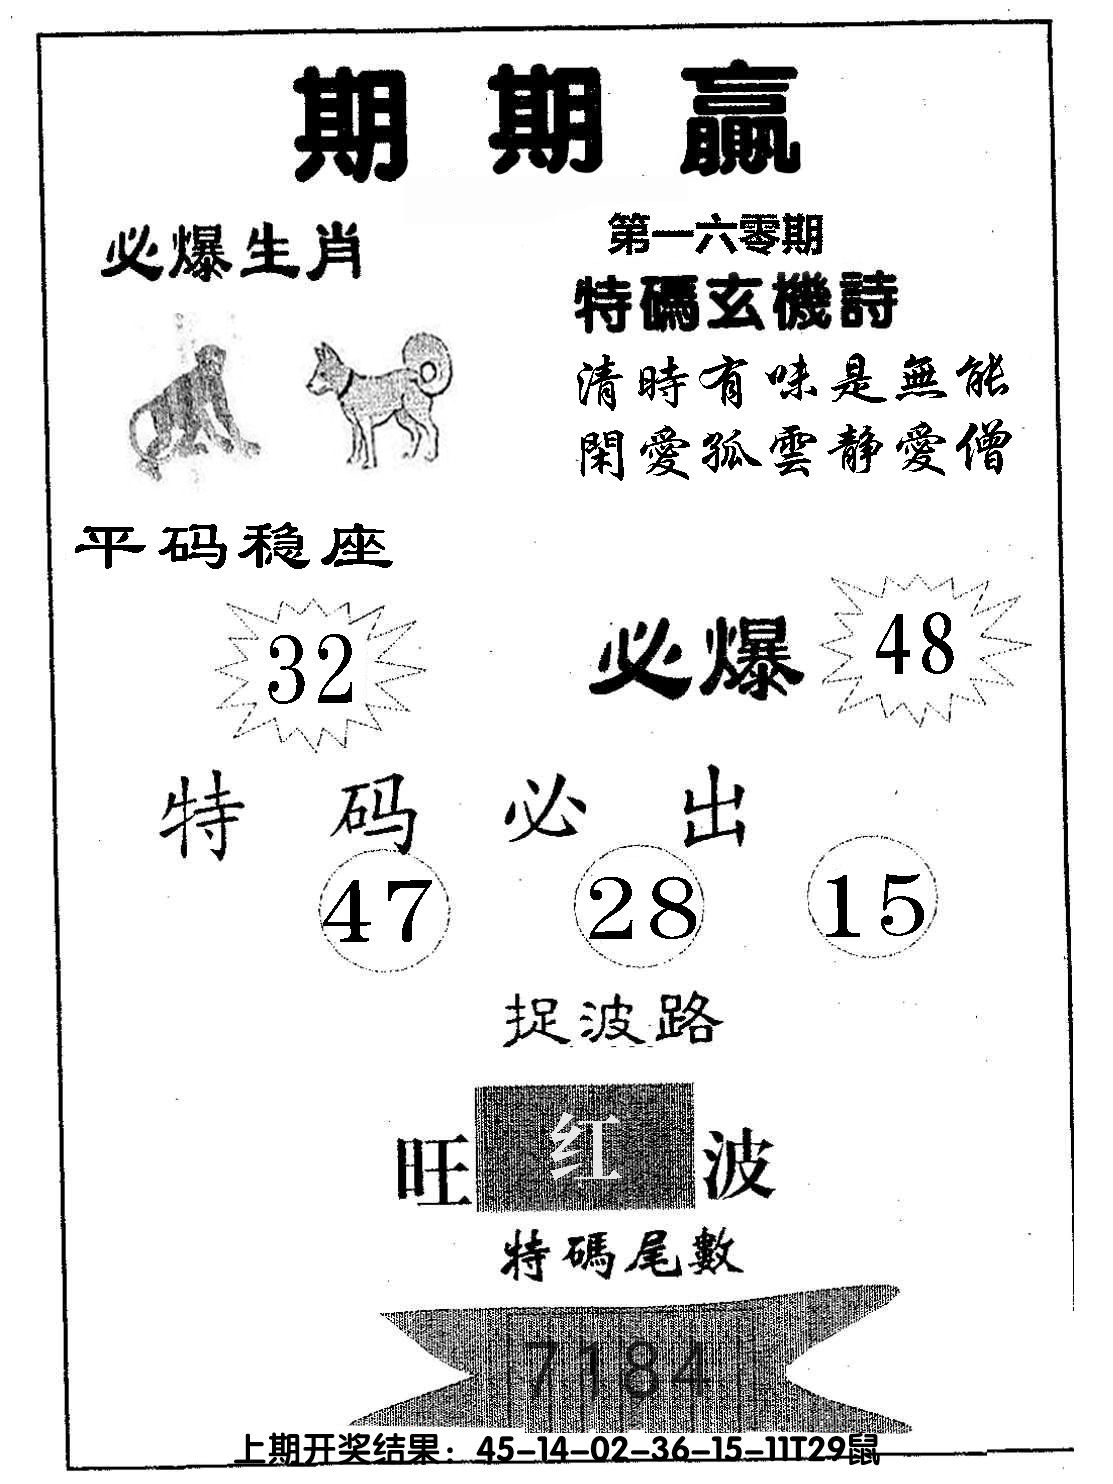 期期赢
必爆生肖
第一六零期
特碼玄機詩
清時有味是無能
閑愛孤雲静愛僧
平码稳座
32
必爆 48
特码必出
47 28 15
捉波路
旺红波
特碼尾數
7184
上期开奖结果：45-14-02-36-15-11T29鼠